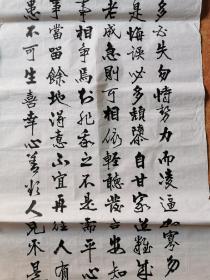 多必失勿恃勢力而凌逼孤寡毋
是悔誤必多頹隳自甘家道難成
老成急則可相依輕聽發言安知
事相爭焉知非我之不是需平心
事當留餘地得意不宜再往人有
患不可生喜幸心善欲人見不是